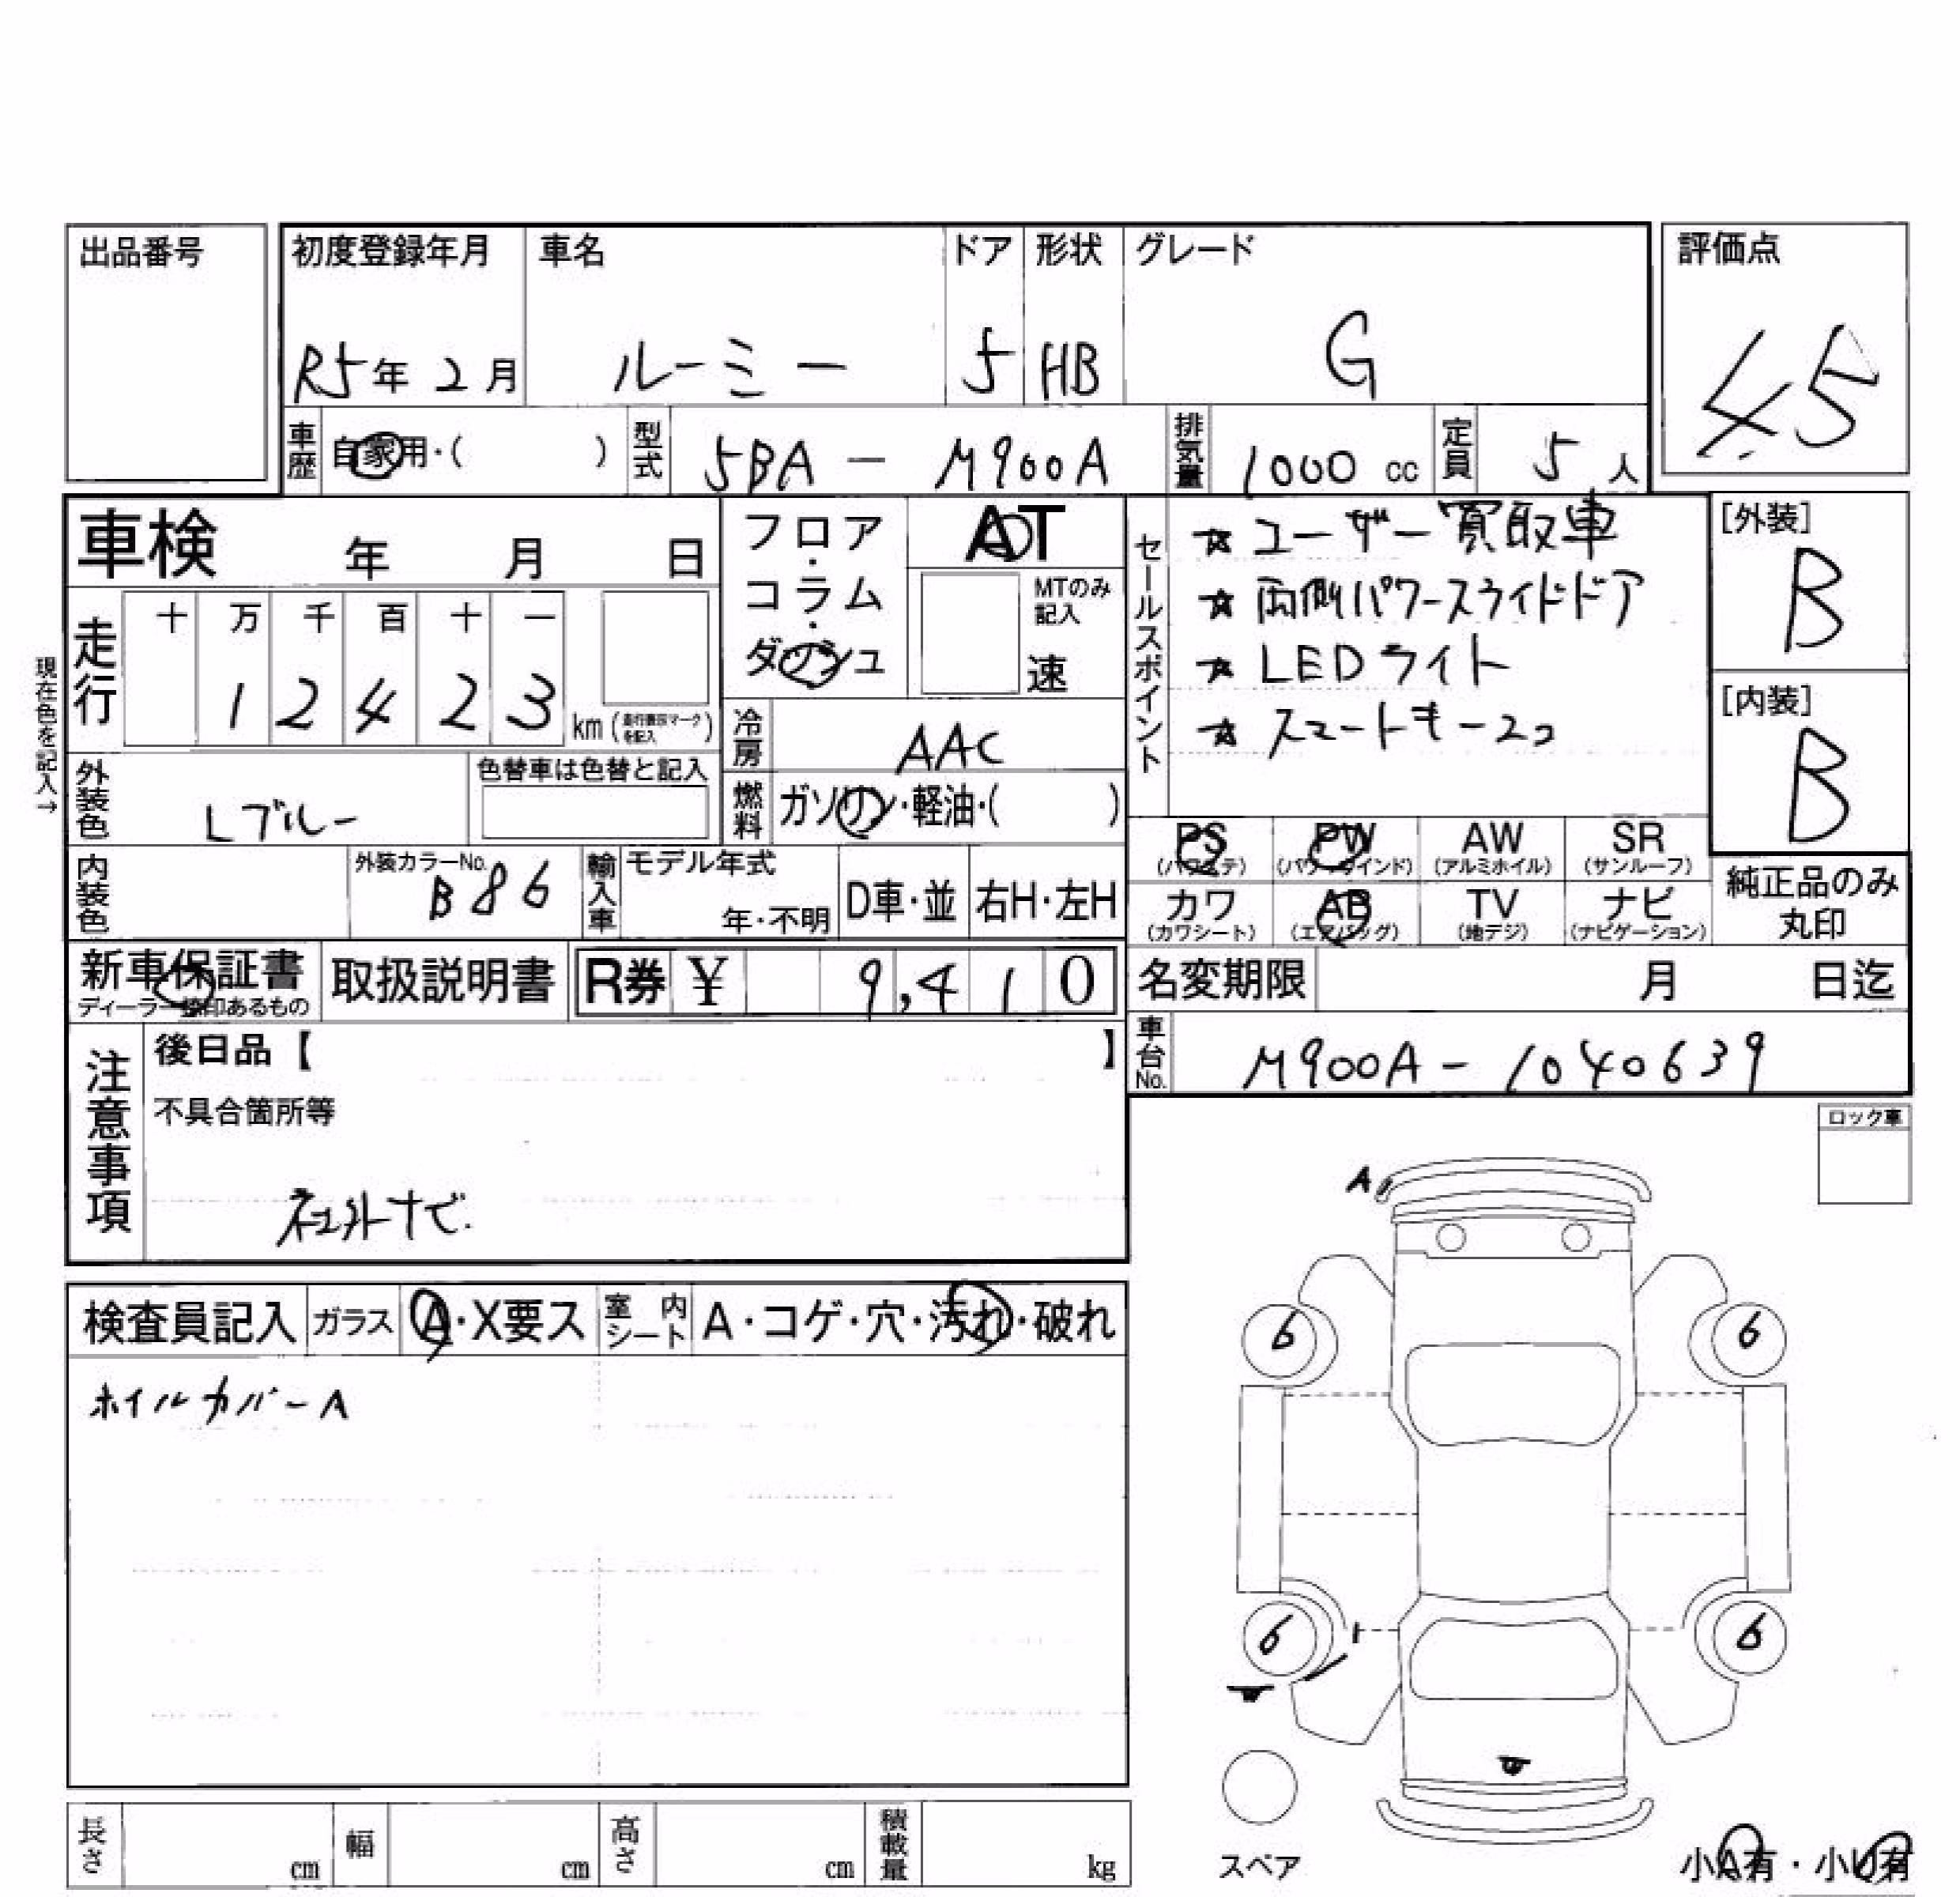 出品番号
初度登録年月 車名 ドア 形状 グレード 評価点
R5年 2月 ルーミー 5 HB G 4.5
車歴 自家用・( ) 型式 5BA － M900A 排気量 1000 cc 定員 5 人
車検 年 月 日
フロア・コラム・ダッシュ
AT
MTのみ記入
速
セールスポイント
☆ ユーザー買取車
☆ 両側パワースライドドア
☆ LEDライト
☆ スマートキー2コ
[外装]
B
[内装]
B
現在色を記入→
走行 十 万 千 百 十 一
1 2 4 2 3 km
冷房 AAC
外装色 Lブルー 色替車は色替と記入
燃料 ガソリン・軽油・( )
PS (パワステ) PW (パワーウインド) AW (アルミホイル) SR (サンルーフ)
カワ (カワシート) AB (エアバッグ) TV (地デジ) ナビ (ナビゲーション)
純正品のみ
丸印
内装色 外装カラーNo. B86 輸入車 モデル年式 年・不明 D車・並 右H・左H
新車保証書 取扱説明書 R券 ¥ 9,410 名変期限 月 日迄
注意事項 後日品【 】
不具合箇所等
社外ナビ.
車台No. M900A - 1040639
ロック車
A
検査員記入 ガラス A・X要ス 室内シート A・コゲ・穴・汚れ・破れ
ホイルカバーA
6 6
6 6
スペア
小A有・小U有
長さ cm 幅 cm 高さ cm 積載量 kg